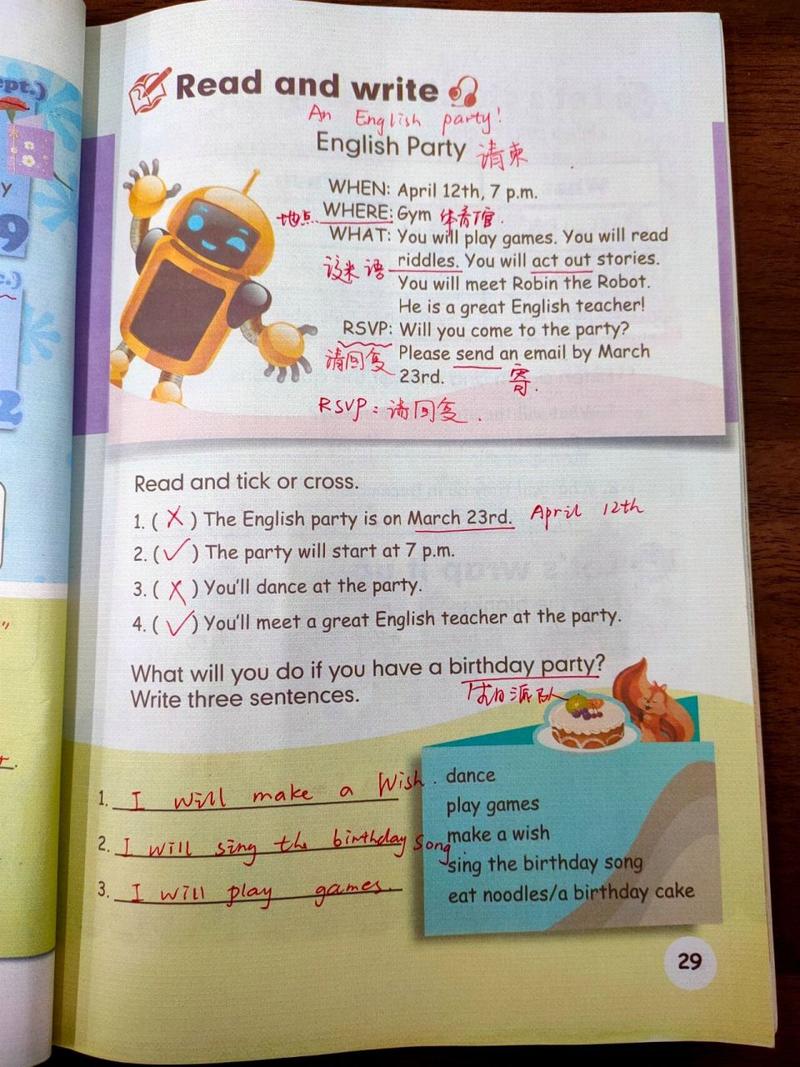 ept.)
y
9
c.)
2
"
r.
Read and write
An English party!
English Party 请柬
WHEN: April 12th, 7 p.m.
地点 WHERE: Gym 体育馆.
WHAT: You will play games. You will read
谜语 riddles. You will act out stories.
You will meet Robin the Robot.
He is a great English teacher!
RSVP: Will you come to the party?
请回复 Please send an email by March
23rd. 寄.
RSVP: 请回复.
Read and tick or cross.
1. ( X ) The English party is on March 23rd. April 12th
2. ( ✓ ) The party will start at 7 p.m.
3. ( X ) You'll dance at the party.
4. ( ✓ ) You'll meet a great English teacher at the party.
What will you do if you have a birthday party?
Write three sentences. 生日派队
1. I will make a Wish.
2. I will sing the birthday Song.
3. I will play games.
dance
play games
make a wish
sing the birthday song
eat noodles/a birthday cake
29